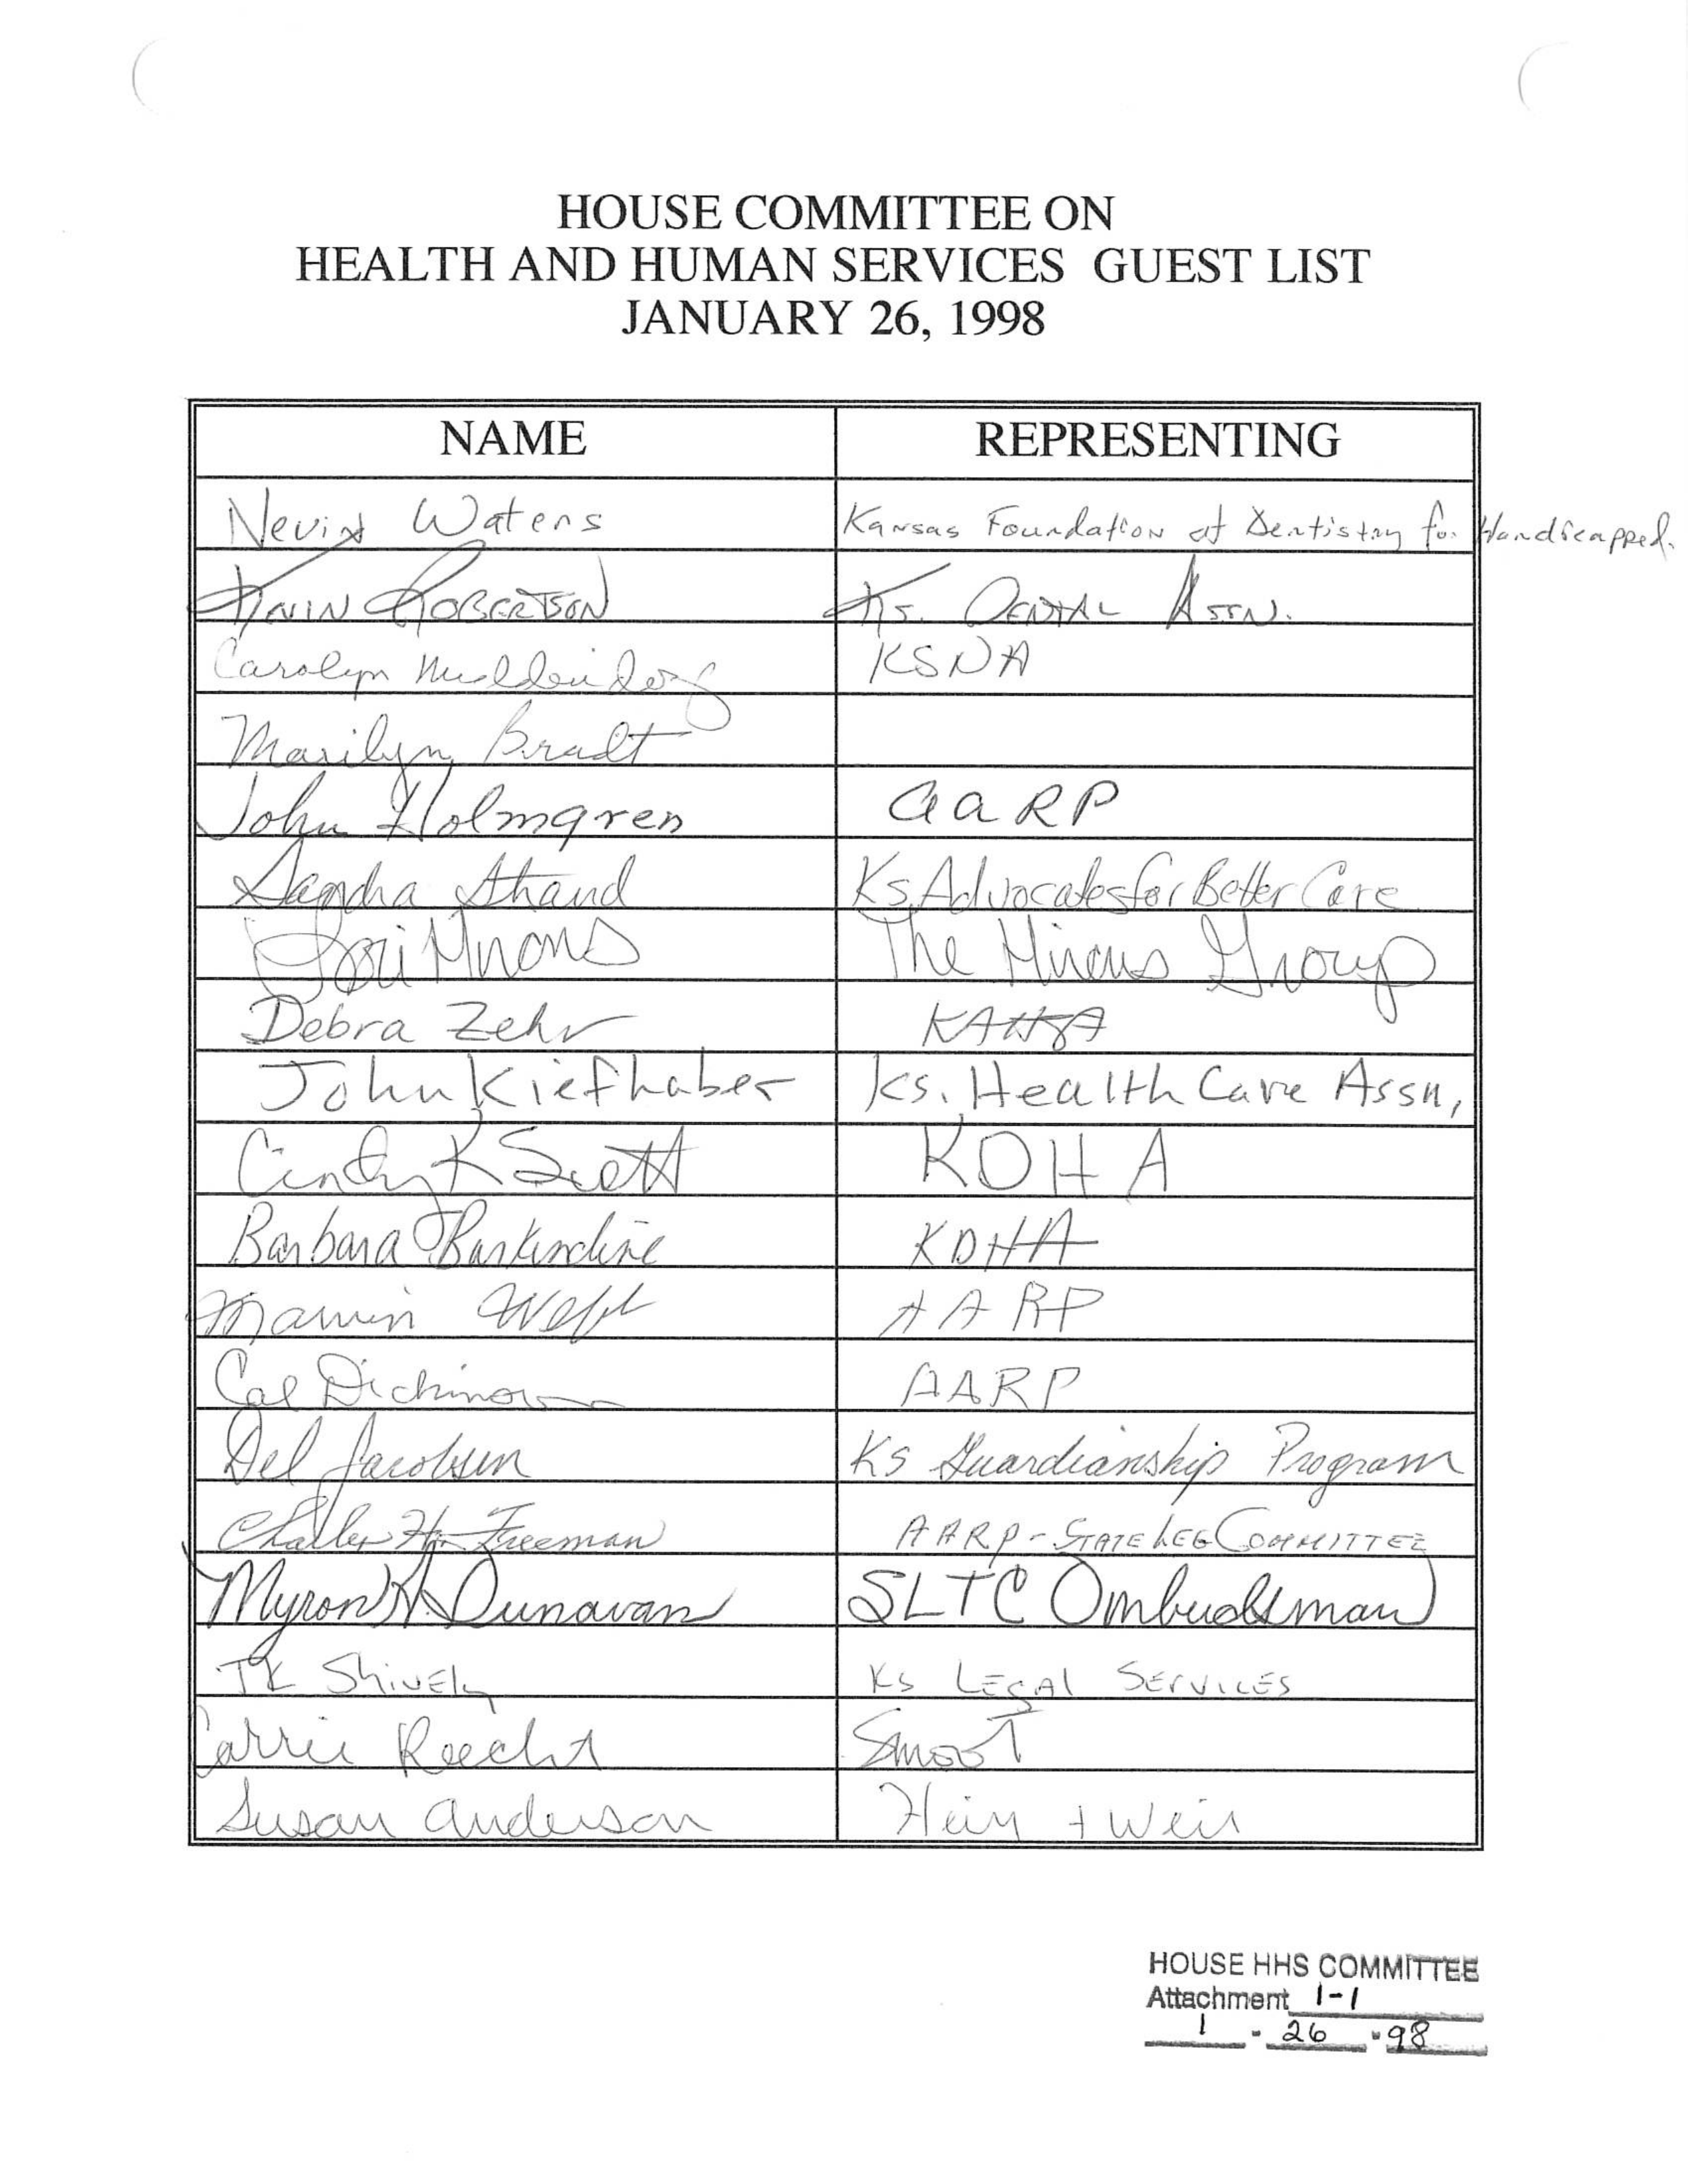 HOUSE COMMITTEE ON
HEALTH AND HUMAN SERVICES GUEST LIST
JANUARY 26, 1998
NAME REPRESENTING
Nevin Waters Kansas Foundation of Dentistry for Handicapped.
Kevin Robertson Ks. Dental Assn.
Carolyn KSNA
Marilyn Bradt
John Holmgren AARP
Sandra Strand Ks Advocates for Better Care
The Group
Debra Zehr KAHSA
John Kiefhaber Ks. Health Care Assn,
Cindy K Scott KDHA
Barbara Burkindine KDHA
Marvin AARP
Cal Dickinson AARP
Del Jacobsen Ks Guardianship Program
Charles H. Freeman AARP - STATE LEG COMMITTEE
Myron H. Dunavan SLTC Ombudsman
TK Shively Ks LEGAL SERVICES
Carrie Smoot
Susan Anderson Hein + Weir
HOUSE HHS COMMITTEE
Attachment 1-1
1 - 26 - 98